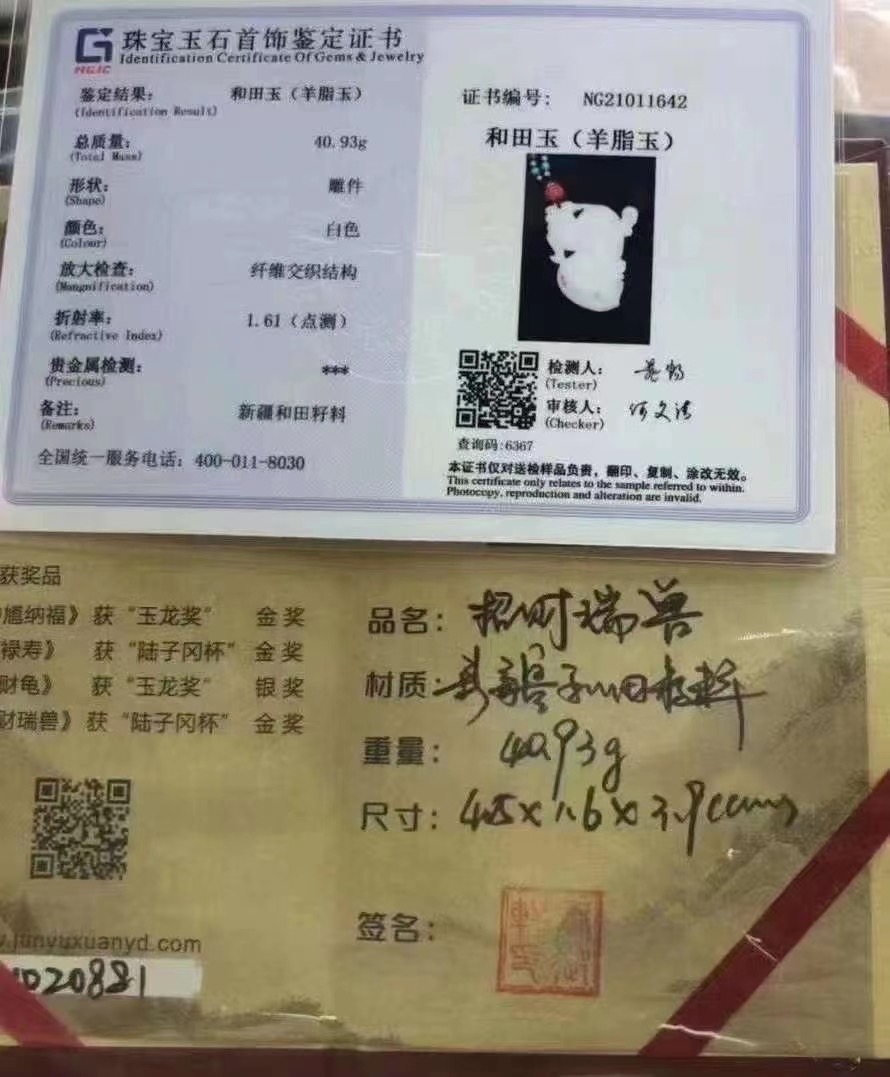 珠宝玉石首饰鉴定证书
Identification Certificate Of Gems & Jewelry
NGJC
鉴定结果: 和田玉（羊脂玉）
(Identification Result)
总质量: 40.93g
(Total Mass)
形状: 雕件
(Shape)
颜色: 白色
(Colour)
放大检查: 纤维交织结构
(Mangnification)
折射率: 1.61（点测）
(Refractive Index)
贵金属检测: ***
(Precious)
备注: 新疆和田籽料
(Remarks)
全国统一服务电话: 400-011-8030
证书编号: NG21011642
和田玉（羊脂玉）
检测人:
(Tester)
审核人: 何文浩
(Checker)
查询码:6367
本证书仅对送检样品负责，翻印、复制、涂改无效。
This certificate only relates to the sample referred to within.
Photocopy, reproduction and alteration are invalid.
获奖品
纳福》 获“玉龙奖” 金奖
禄寿》 获“陆子冈杯” 金奖
财龟》 获“玉龙奖” 银奖
财瑞兽》 获“陆子冈杯” 金奖
.junyuxuanyd.com
D20881
品名: 招财瑞兽
材质: 新疆
重量: 40.93g
尺寸: 4.5×1.6×3.9
签名: